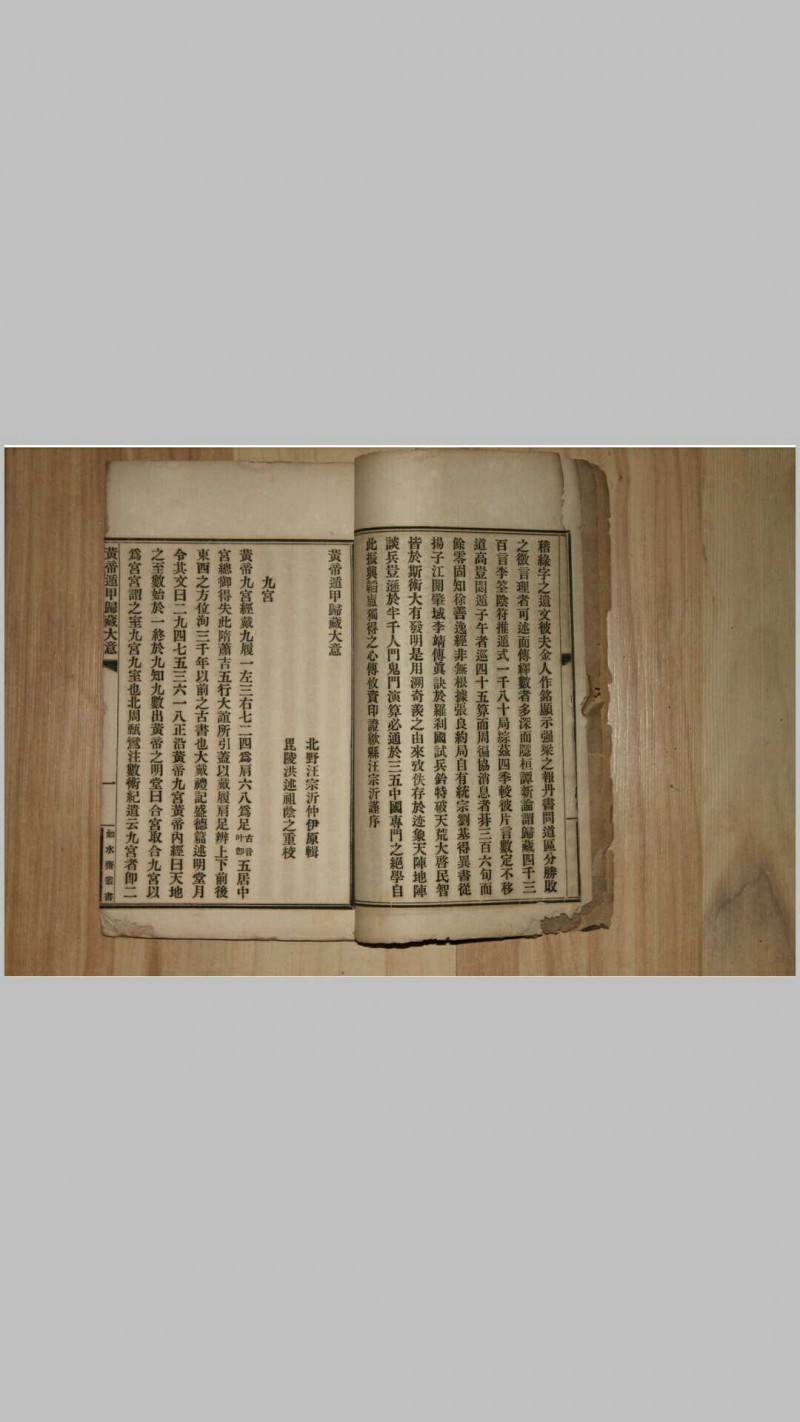 稽綠字之遺文彼夫金人作銘顯示强梁之報丹書問道區分勝敗
之徵言理者可述而傳釋數者多深而隱桓譚新論謂歸藏四千三
百言李筌陰符推遁式一千八十局綜茲四季較彼片言數定不移
道高豈閟遁子午者巡四十五算而周徧協消息者朞三百六旬而
餘零固知徐善逸經非無根據張良約局自有統宗劉基得異書從
揚子江開肇域李靖傳眞訣於羅利國試兵鈐特破天荒大啓民智
皆於斯術大有發明是用溯奇羨之由來攷佚存於迹象天陣地陣
談兵豈遜於牛千人門鬼門演算必通於三五中國專門之絕學自
此振興韜廬獨得之心傳攸資印證歙縣汪宗沂謹序
黃帝遁甲歸藏大意
北野汪宗沂仲伊原輯
毘陵洪述祖蔭之重校
九宮
黃帝九宮經戴九履一左三右七二四爲肩六八爲足古音叶卽五居中
宮總御得失此隋蕭吉五行大誼所引蓋以戴履肩足辨上下前後
東西之方位洵三千年以前之古書也大戴禮記盛德篇述明堂月
令其文曰二九四七五三六一八正沿黃帝九宮黃帝內經曰天地
之至數始於一終於九知九數出黃帝之明堂曰合宮取合九宮以
爲宮宮謂之室九宮九室也北周甄鸞注數術紀遺云九宮者卽二
黃帝遁甲歸藏大意
一
如水齋叢書